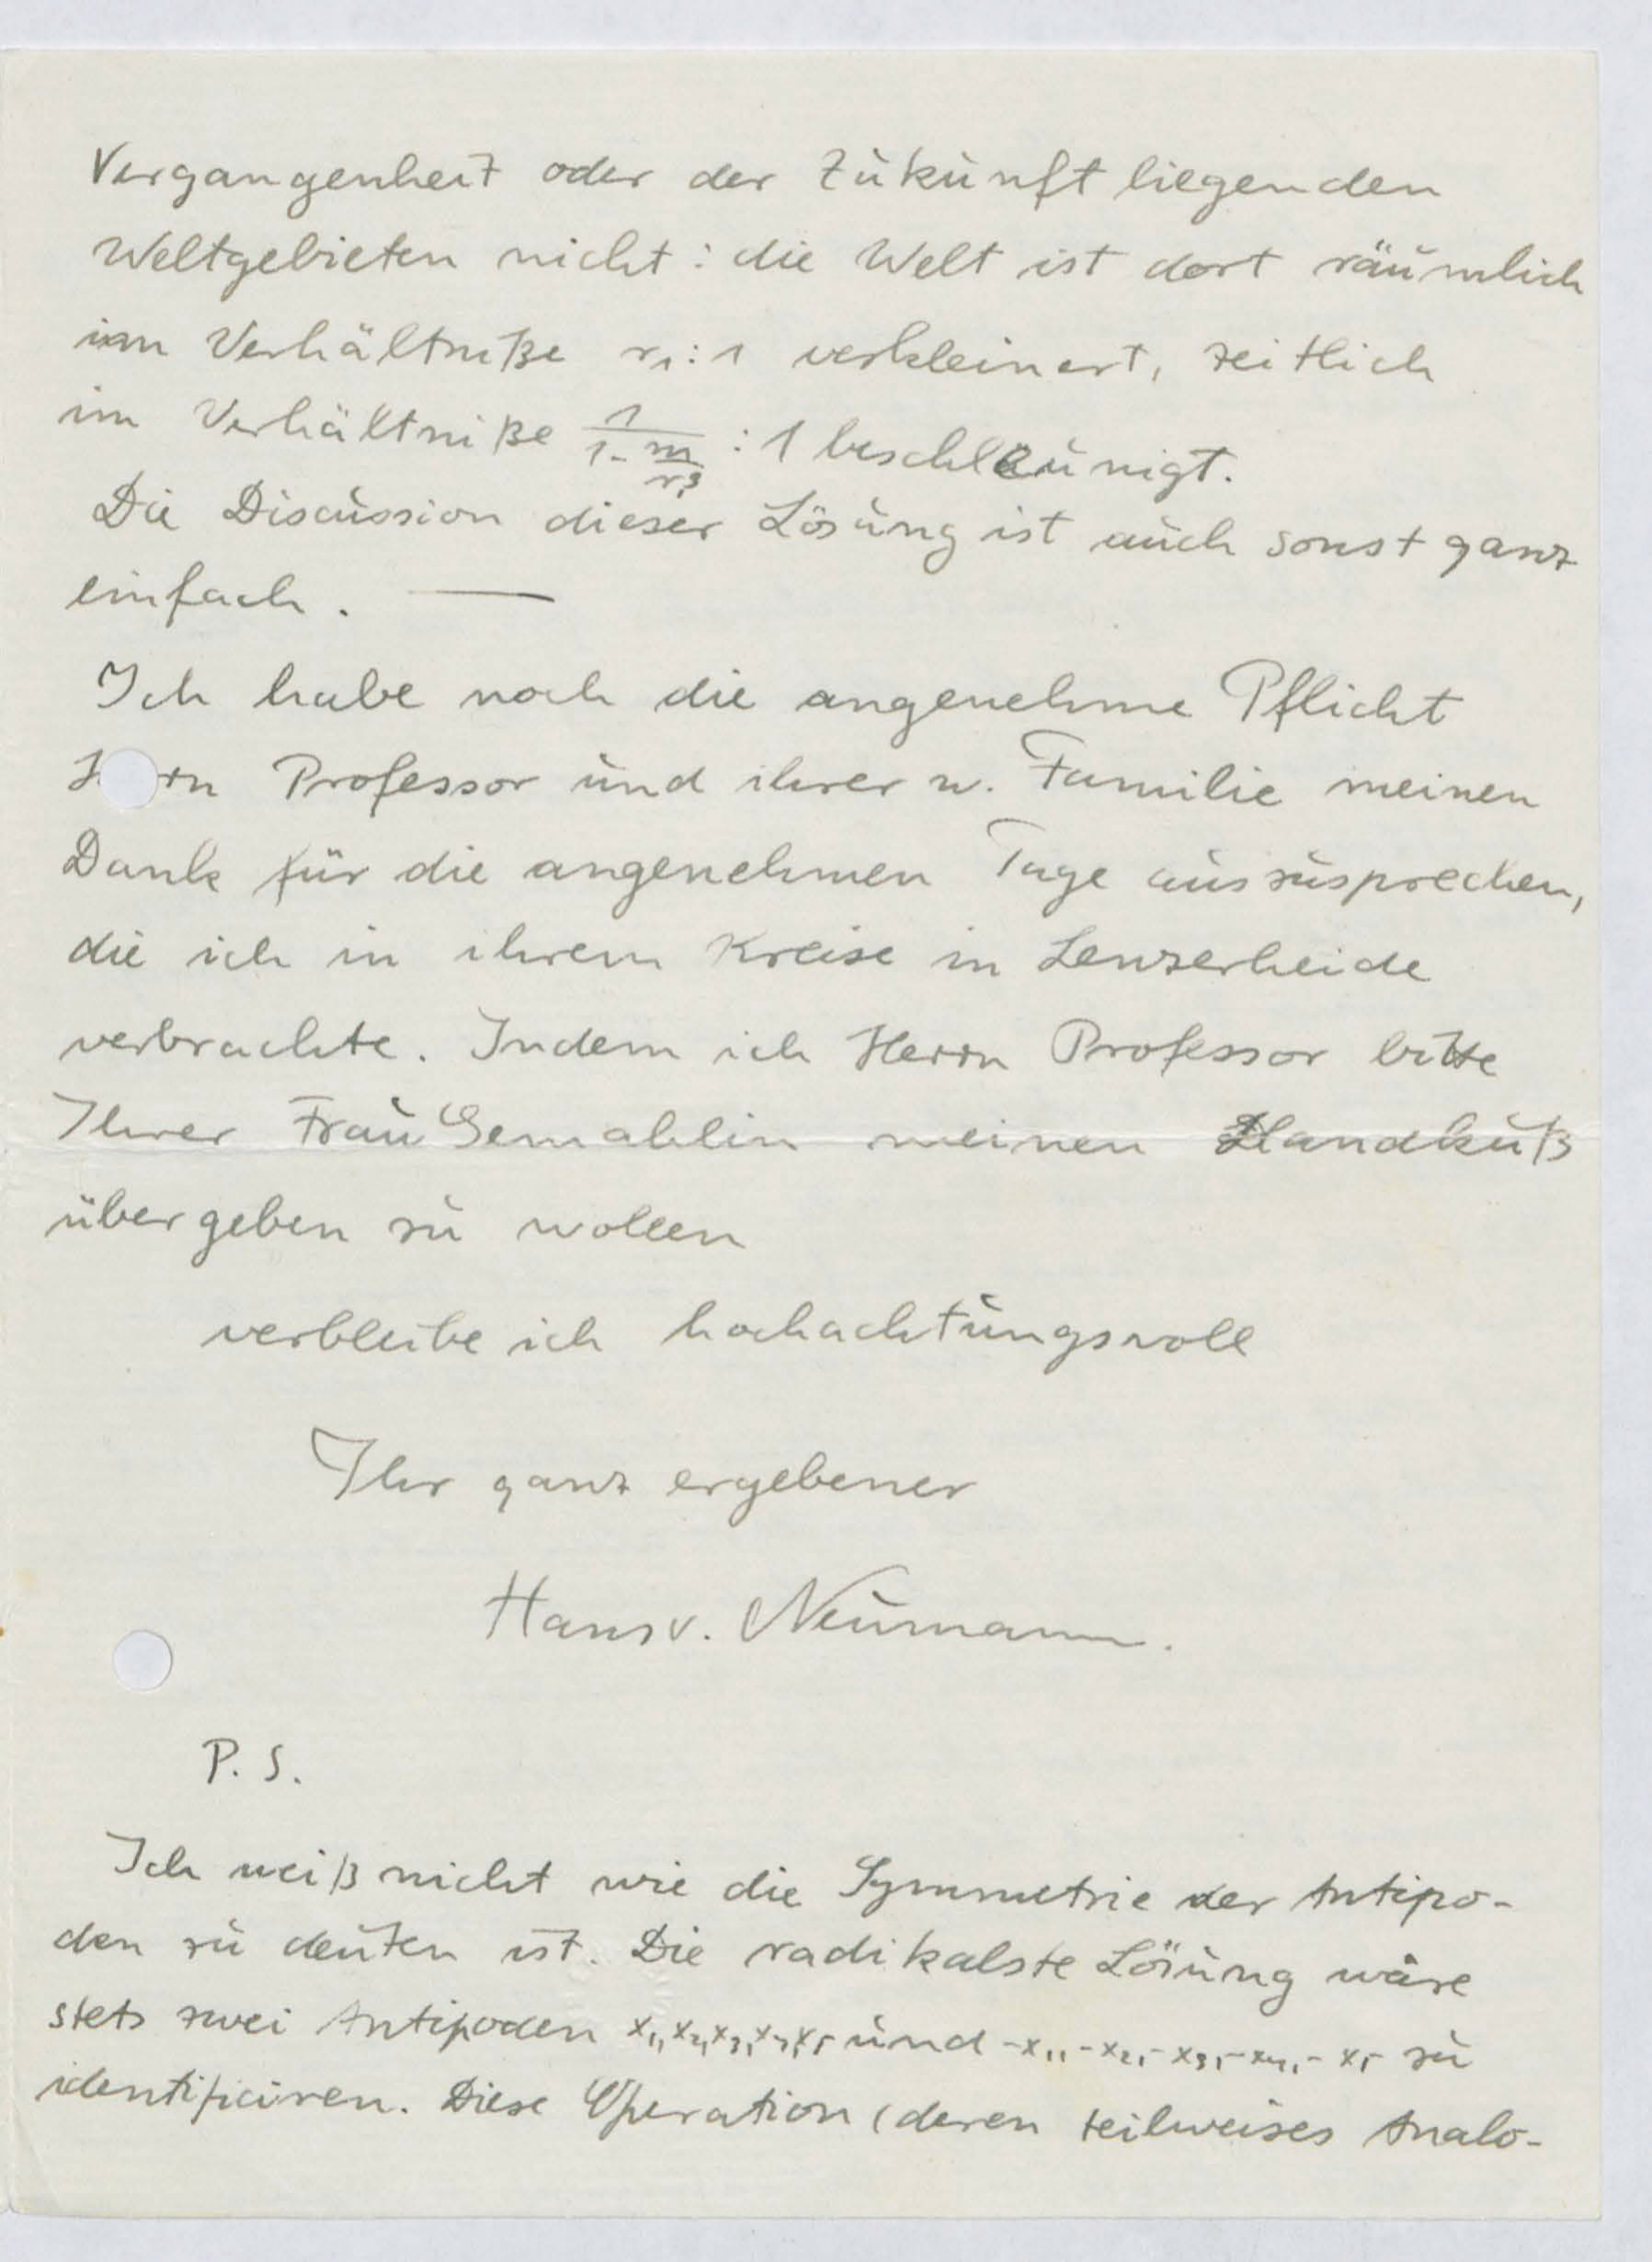 Vergangenheit oder der Zukunft liegenden
Weltgebieten nicht: die Welt ist dort räumlich
im Verhältniße r₁:1 verkleinert, zeitlich
im Verhältniße 1/(1-m/r₃) : 1 beschleunigt.
Die Discussion dieser Lösung ist auch sonst ganz
einfach. —
Ich habe noch die angenehme Pflicht
H rn Professor und ihrer w. Familie meinen
Dank für die angenehmen Tage auszusprechen,
die ich in ihrem Kreise in Lenzerheide
verbrachte. Indem ich Herrn Professor bitte
Ihrer Frau Gemahlin meinen Handkuß
übergeben zu wollen
verbleibe ich hochachtungsvoll
Ihr ganz ergebener
Hans v. Neumann.
P. S.
Ich weiß nicht wie die Symmetrie der Antipo-
den zu deuten ist. Die radikalste Lösung wäre
stets zwei Antipoden x₁,x₂,x₃,x₄,x₅ und -x₁,-x₂,-x₃,-x₄,-x₅ zu
identificiren. Diese Operation (deren teilweises Analo-